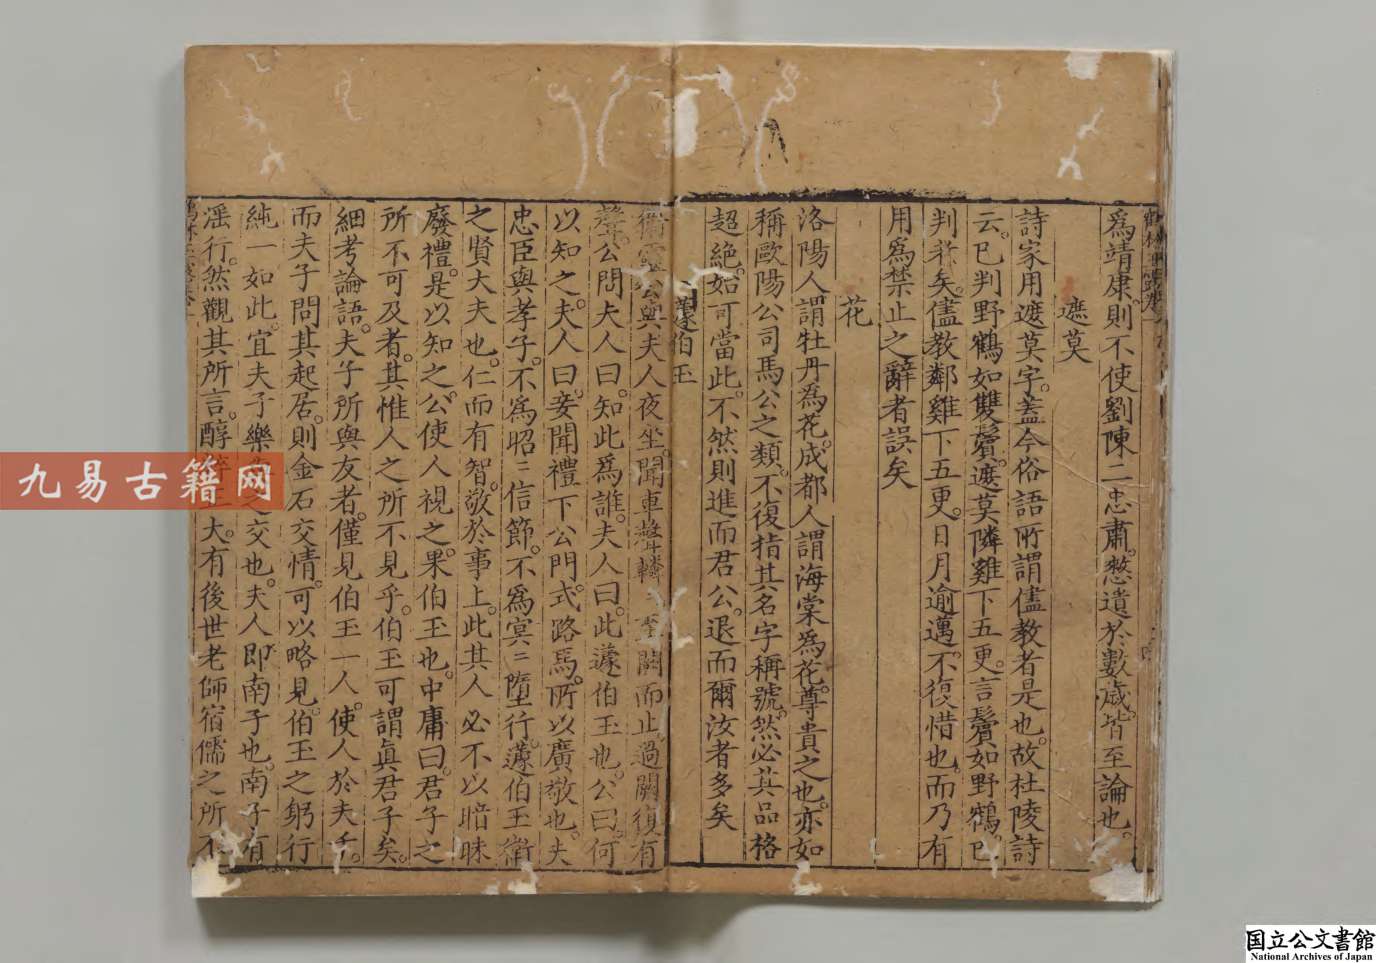 爲靖康則不使劉陳二忠肅憗遺於數歲皆至論也
遮莫
詩家用遮莫字蓋今俗語所謂儘教者是也故杜陵詩
云已判野鶴如雙鬢遮莫隣雞下五更言鬢如野鶴已
判老矣儘教鄰雞下五更日月逾邁不復惜也而乃有
用爲禁止之辭者誤矣
花
洛陽人謂牡丹爲花成都人謂海棠爲花尊貴之也亦如
稱歐陽公司馬公之類不復指其名字稱號然必其品格
超絶始可當此不然則進而君公退而爾汝者多矣
蘧伯玉
衛靈公與夫人夜坐聞車聲轔 至闕而止過闕復有
聲公問夫人曰知此爲誰夫人曰此蘧伯玉也公曰何
以知之夫人曰妾聞禮下公門式路馬所以廣敬也夫
忠臣與孝子不爲昭〻信節不爲冥〻墮行蘧伯玉衛
之賢大夫也仁而有智敬於事上此其人必不以暗昧
廢禮是以知之公使人視之果伯玉也中庸曰君子之
所不可及者其惟人之所不見乎伯玉可謂眞君子矣
細考論語夫子所與友者僅見伯玉一人使人於夫子
而夫子問其起居則金石交情可以略見伯玉之躬行
純一如此宜夫子樂 之交也夫人即南子也南子有
淫行然觀其所言醇 正大有後世老師宿儒之所不
九易古籍网
国立公文書館
National Archives of Japan